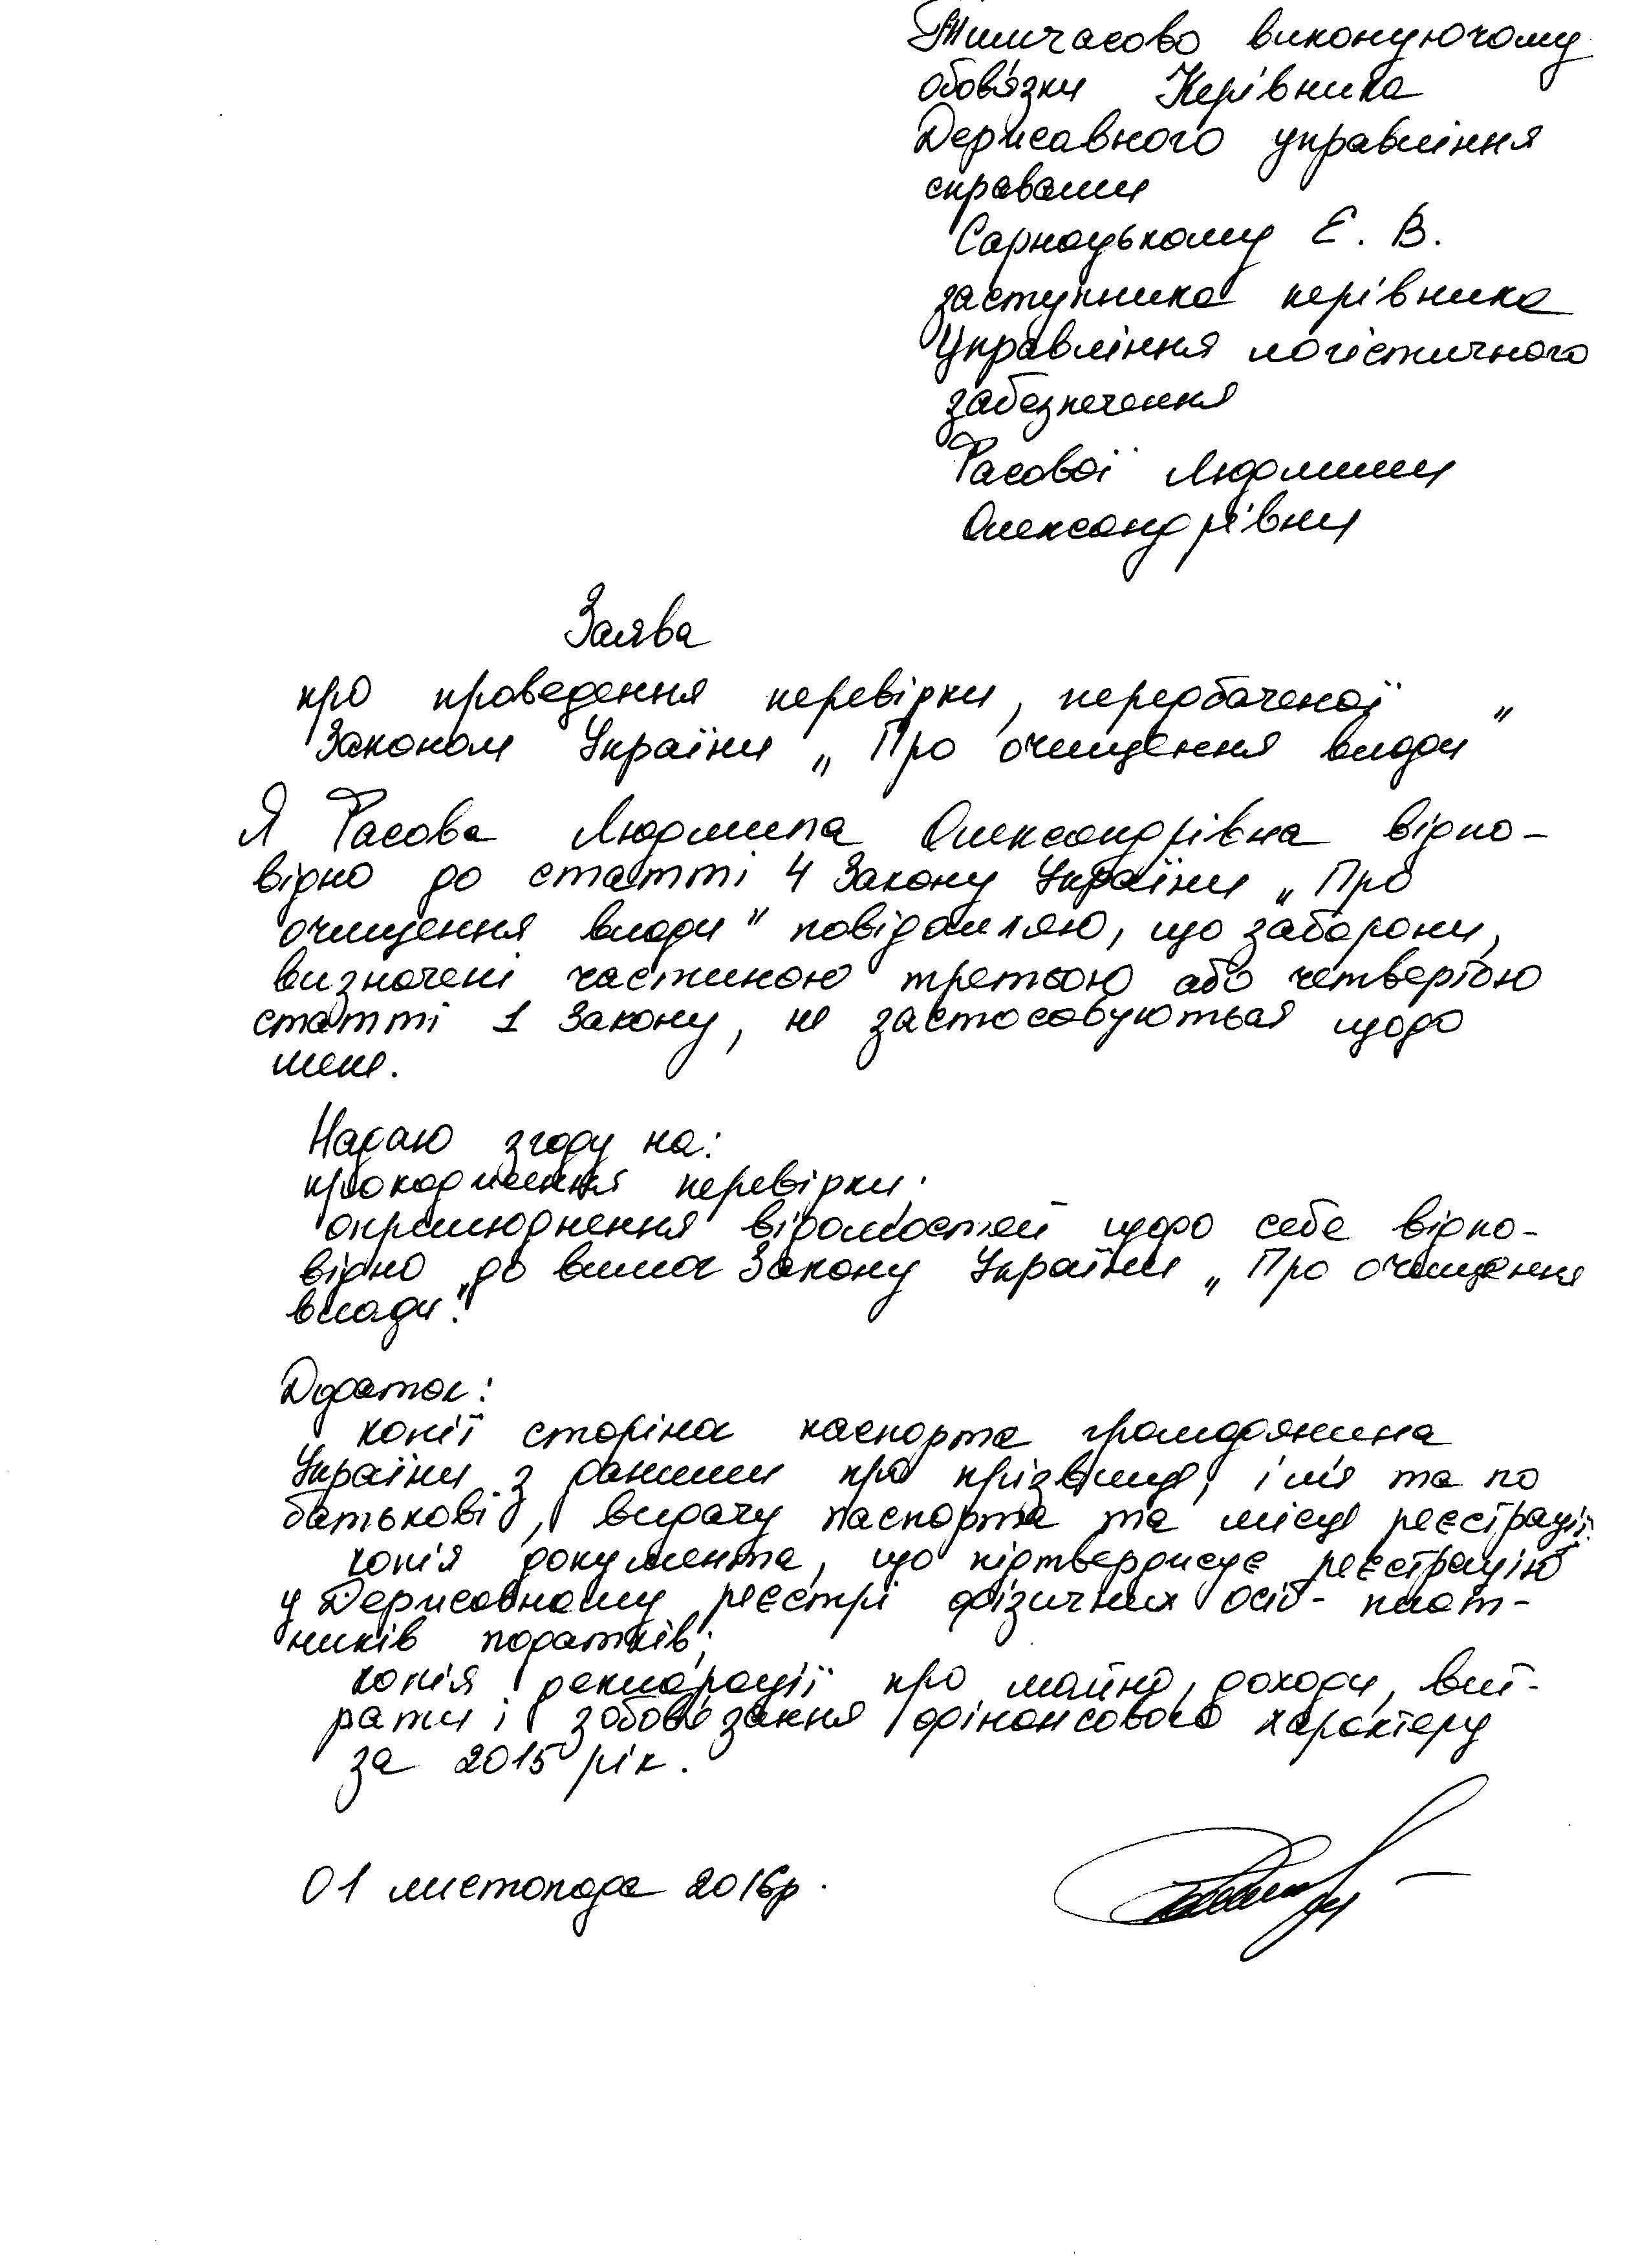 Тимчасово виконуючому
обов'язки Керівника
Державного управління
справами
Сарнацькому Є. В.
заступника керівника
Управління логістичного
забезпечення
Расової Людмили
Олександрівни
Заява
про проведення перевірки, передбаченої
Законом України „Про очищення влади"
Я Расова Людмила Олександрівна відпо-
відно до статті 4 Закону України „Про
очищення влади" повідомляю, що заборони,
визначені частиною третьою або четвертою
статті 1 Закону, не застосовуються щодо
мене.
Надаю згоду на:
проходження перевірки;
оприлюднення відомостей щодо себе відпо-
відно до вимог Закону України „Про очищення
влади".
Додаток:
копії сторінок паспорта громадянина
України з даними про прізвище, ім'я та по
батькові, видачу паспорта та місце реєстрації;
копія документа, що підтверджує реєстрацію
у Державному реєстрі фізичних осіб - плат-
ників податків;
копія декларації про майно, доходи, вит-
рати і зобов'язання фінансового характеру
за 2015 рік.
01 листопада 2016р.